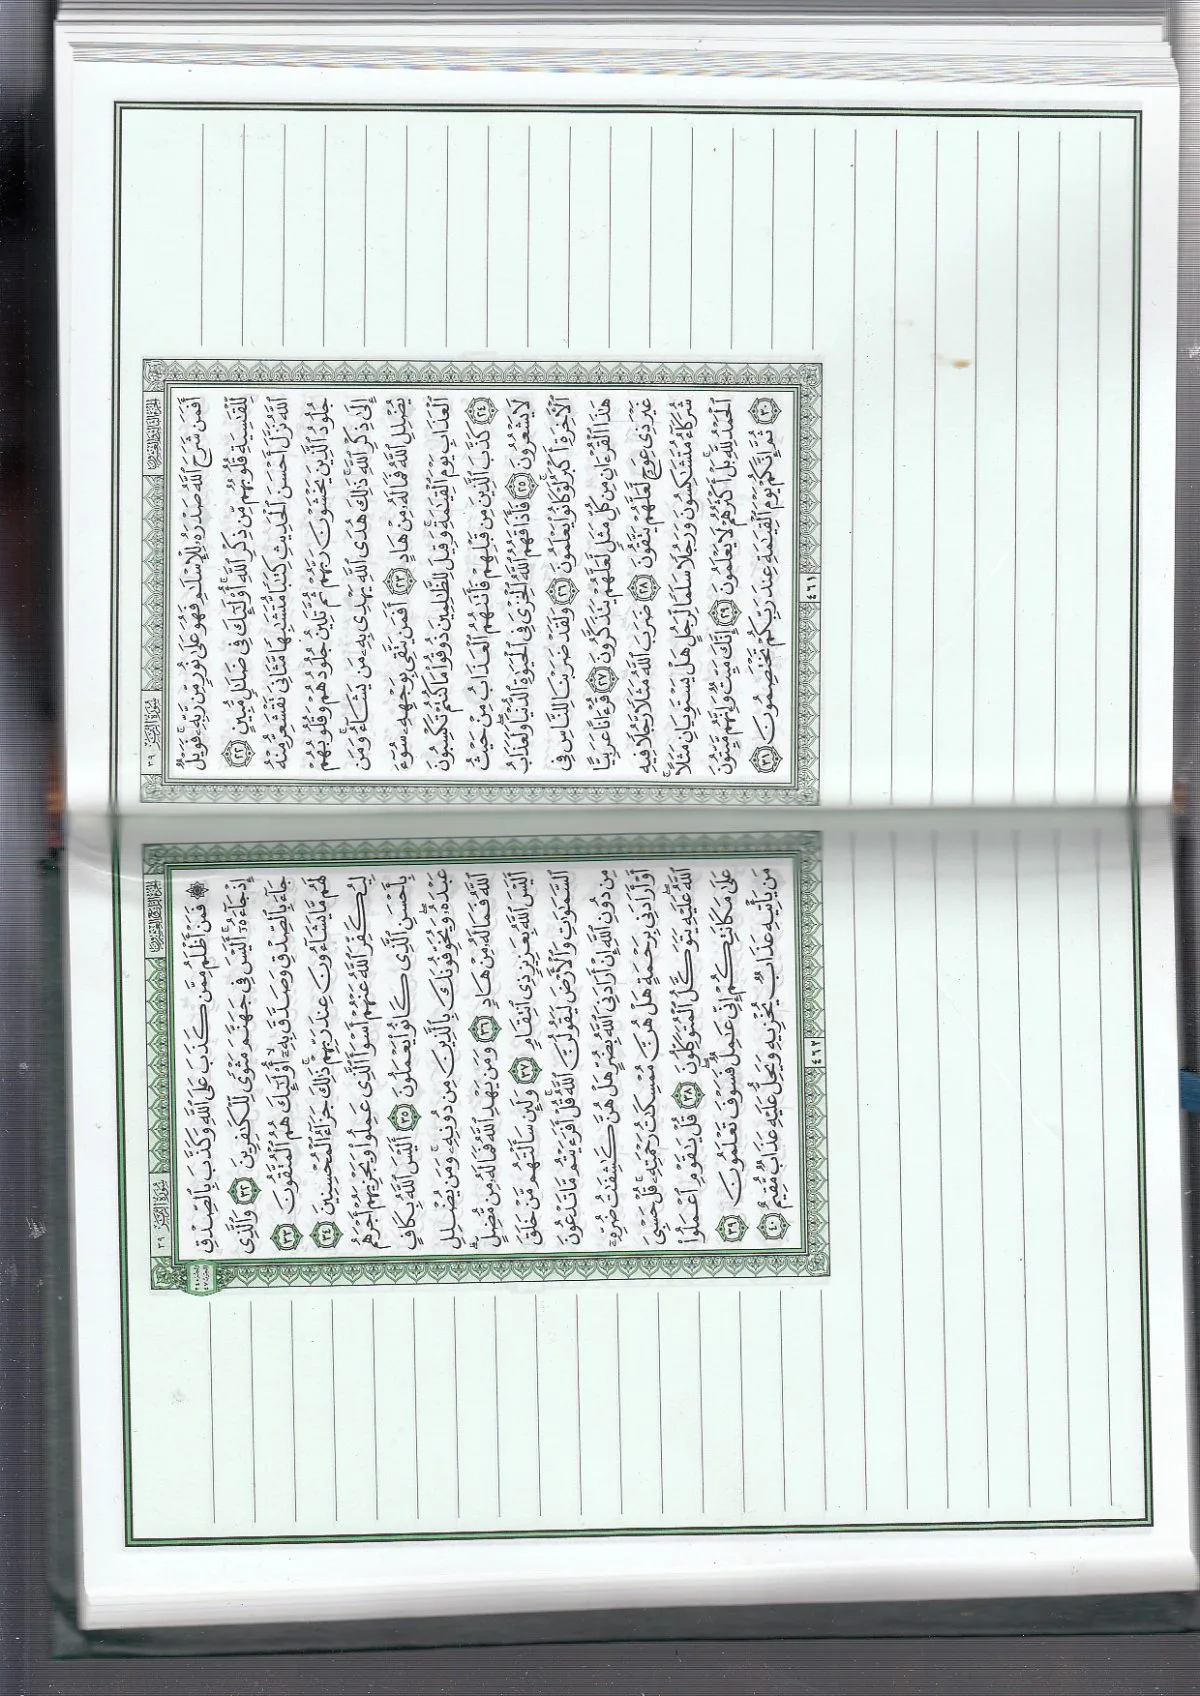 ٣٩ سُورَةُ الزُّمَرِ
الجزء الثالث والعشرون
أَفَمَن شَرَحَ ٱللَّهُ صَدْرَهُۥ لِلْإِسْلَـٰمِ فَهُوَ عَلَىٰ نُورٍ مِّن رَّبِّهِۦ ۚ فَوَيْلٌ
لِّلْقَـٰسِيَةِ قُلُوبُهُم مِّن ذِكْرِ ٱللَّهِ ۚ أُو۟لَـٰٓئِكَ فِى ضَلَـٰلٍ مُّبِينٍ ٢٢
ٱللَّهُ نَزَّلَ أَحْسَنَ ٱلْحَدِيثِ كِتَـٰبًا مُّتَشَـٰبِهًا مَّثَانِىَ تَقْشَعِرُّ مِنْهُ
جُلُودُ ٱلَّذِينَ يَخْشَوْنَ رَبَّهُمْ ثُمَّ تَلِينُ جُلُودُهُمْ وَقُلُوبُهُمْ
إِلَىٰ ذِكْرِ ٱللَّهِ ۚ ذَٰلِكَ هُدَى ٱللَّهِ يَهْدِى بِهِۦ مَن يَشَآءُ ۚ وَمَن
يُضْلِلِ ٱللَّهُ فَمَا لَهُۥ مِنْ هَادٍ ٢٣ أَفَمَن يَتَّقِى بِوَجْهِهِۦ سُوٓءَ
ٱلْعَذَابِ يَوْمَ ٱلْقِيَـٰمَةِ ۚ وَقِيلَ لِلظَّـٰلِمِينَ ذُوقُوا۟ مَا كُنتُمْ تَكْسِبُونَ
٢٤ كَذَّبَ ٱلَّذِينَ مِن قَبْلِهِمْ فَأَتَىٰهُمُ ٱلْعَذَابُ مِنْ حَيْثُ
لَا يَشْعُرُونَ ٢٥ فَأَذَاقَهُمُ ٱللَّهُ ٱلْخِزْىَ فِى ٱلْحَيَوٰةِ ٱلدُّنْيَا ۖ وَلَعَذَابُ
ٱلْـَٔاخِرَةِ أَكْبَرُ ۚ لَوْ كَانُوا۟ يَعْلَمُونَ ٢٦ وَلَقَدْ ضَرَبْنَا لِلنَّاسِ فِى
هَـٰذَا ٱلْقُرْءَانِ مِن كُلِّ مَثَلٍ لَّعَلَّهُمْ يَتَذَكَّرُونَ ٢٧ قُرْءَانًا عَرَبِيًّا
غَيْرَ ذِى عِوَجٍ لَّعَلَّهُمْ يَتَّقُونَ ٢٨ ضَرَبَ ٱللَّهُ مَثَلًا رَّجُلًا فِيهِ
شُرَكَآءُ مُتَشَـٰكِسُونَ وَرَجُلًا سَلَمًا لِّرَجُلٍ هَلْ يَسْتَوِيَانِ مَثَلًا ۚ
ٱلْحَمْدُ لِلَّهِ ۚ بَلْ أَكْثَرُهُمْ لَا يَعْلَمُونَ ٢٩ إِنَّكَ مَيِّتٌ وَإِنَّهُم مَّيِّتُونَ
٣٠ ثُمَّ إِنَّكُمْ يَوْمَ ٱلْقِيَـٰمَةِ عِندَ رَبِّكُمْ تَخْتَصِمُونَ ٣١
٤٦١
٣٩ سُورَةُ الزُّمَرِ
۞ فَمَنْ أَظْلَمُ مِمَّن كَذَبَ عَلَى ٱللَّهِ وَكَذَّبَ بِٱلصِّدْقِ
إِذْ جَآءَهُۥٓ ۚ أَلَيْسَ فِى جَهَنَّمَ مَثْوًى لِّلْكَـٰفِرِينَ ٣٢ وَٱلَّذِى
جَآءَ بِٱلصِّدْقِ وَصَدَّقَ بِهِۦٓ ۙ أُو۟لَـٰٓئِكَ هُمُ ٱلْمُتَّقُونَ ٣٣
لَهُم مَّا يَشَآءُونَ عِندَ رَبِّهِمْ ۚ ذَٰلِكَ جَزَآءُ ٱلْمُحْسِنِينَ ٣٤
لِيُكَفِّرَ ٱللَّهُ عَنْهُمْ أَسْوَأَ ٱلَّذِى عَمِلُوا۟ وَيَجْزِيَهُمْ أَجْرَهُم
بِأَحْسَنِ ٱلَّذِى كَانُوا۟ يَعْمَلُونَ ٣٥ أَلَيْسَ ٱللَّهُ بِكَافٍ
عَبْدَهُۥ ۖ وَيُخَوِّفُونَكَ بِٱلَّذِينَ مِن دُونِهِۦ ۚ وَمَن يُضْلِلِ
ٱللَّهُ فَمَا لَهُۥ مِنْ هَادٍ ٣٦ وَمَن يَهْدِ ٱللَّهُ فَمَا لَهُۥ مِن مُّضِلٍّ ۗ
أَلَيْسَ ٱللَّهُ بِعَزِيزٍ ذِى ٱنتِقَامٍ ٣٧ وَلَئِن سَأَلْتَهُم مَّنْ خَلَقَ
ٱلسَّمَـٰوَٰتِ وَٱلْأَرْضَ لَيَقُولُنَّ ٱللَّهُ ۚ قُلْ أَفَرَءَيْتُم مَّا تَدْعُونَ
مِن دُونِ ٱللَّهِ إِنْ أَرَادَنِىَ ٱللَّهُ بِضُرٍّ هَلْ هُنَّ كَـٰشِفَـٰتُ ضُرِّهِۦٓ
أَوْ أَرَادَنِى بِرَحْمَةٍ هَلْ هُنَّ مُمْسِكَـٰتُ رَحْمَتِهِۦ ۚ قُلْ حَسْبِىَ
ٱللَّهُ ۖ عَلَيْهِ يَتَوَكَّلُ ٱلْمُتَوَكِّلُونَ ٣٨ قُلْ يَـٰقَوْمِ ٱعْمَلُوا۟
عَلَىٰ مَكَانَتِكُمْ إِنِّى عَـٰمِلٌ ۖ فَسَوْفَ تَعْلَمُونَ ٣٩
مَن يَأْتِيهِ عَذَابٌ يُخْزِيهِ وَيَحِلُّ عَلَيْهِ عَذَابٌ مُّقِيمٌ ٤٠
٤٦٢